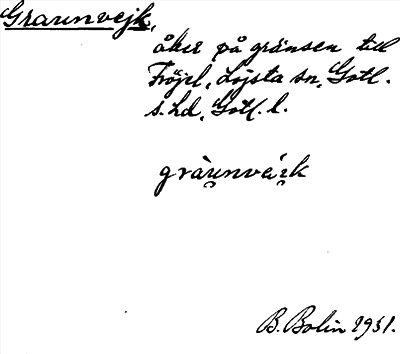 Graunvejk,
åker på gränsen till
Fröjel, Lojsta sn, Gotl.
s. hd, Gotl. l.
gràu̯nvei̯k
B. Bolin 1931.